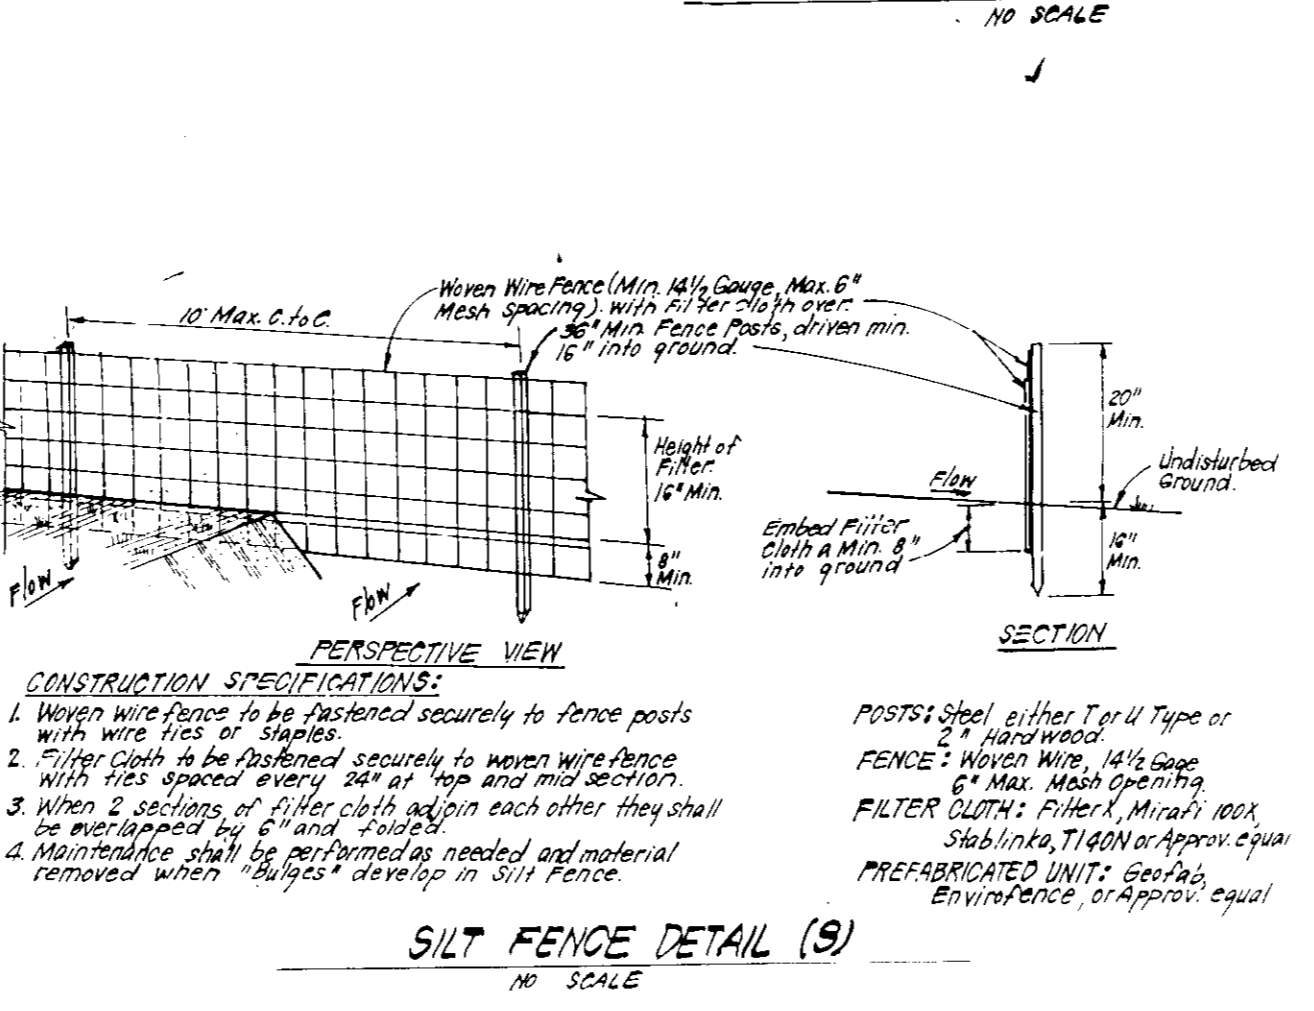 NO SCALE
10' Max. C. to C.
Woven Wire Fence (Min. 14½ Gauge, Max. 6"
Mesh spacing) with Filter Cloth over.
36" Min. Fence Posts, driven min.
16" into ground.
Height of
Filter.
16" Min.
8"
Min.
Flow
Flow
PERSPECTIVE VIEW
20"
Min.
Undisturbed
Ground.
Flow
Embed Filter
Cloth a Min. 8"
into ground
16"
Min.
SECTION
CONSTRUCTION SPECIFICATIONS:
1. Woven wire fence to be fastened securely to fence posts
with wire ties or staples.
2. Filter Cloth to be fastened securely to woven wire fence
with ties spaced every 24" at top and mid section.
3. When 2 sections of filter cloth adjoin each other they shall
be overlapped by 6" and folded.
4. Maintenance shall be performed as needed and material
removed when "Bulges" develop in Silt Fence.
POSTS: Steel either T or U Type or
2" Hardwood.
FENCE: Woven Wire, 14½ Gage
6" Max. Mesh Opening.
FILTER CLOTH: Filter X, Mirafi 100X,
Stablinka, T140N or Approv. equal
PREFABRICATED UNIT: Geofab,
Envirofence, or Approv. equal
SILT FENCE DETAIL (S)
NO SCALE